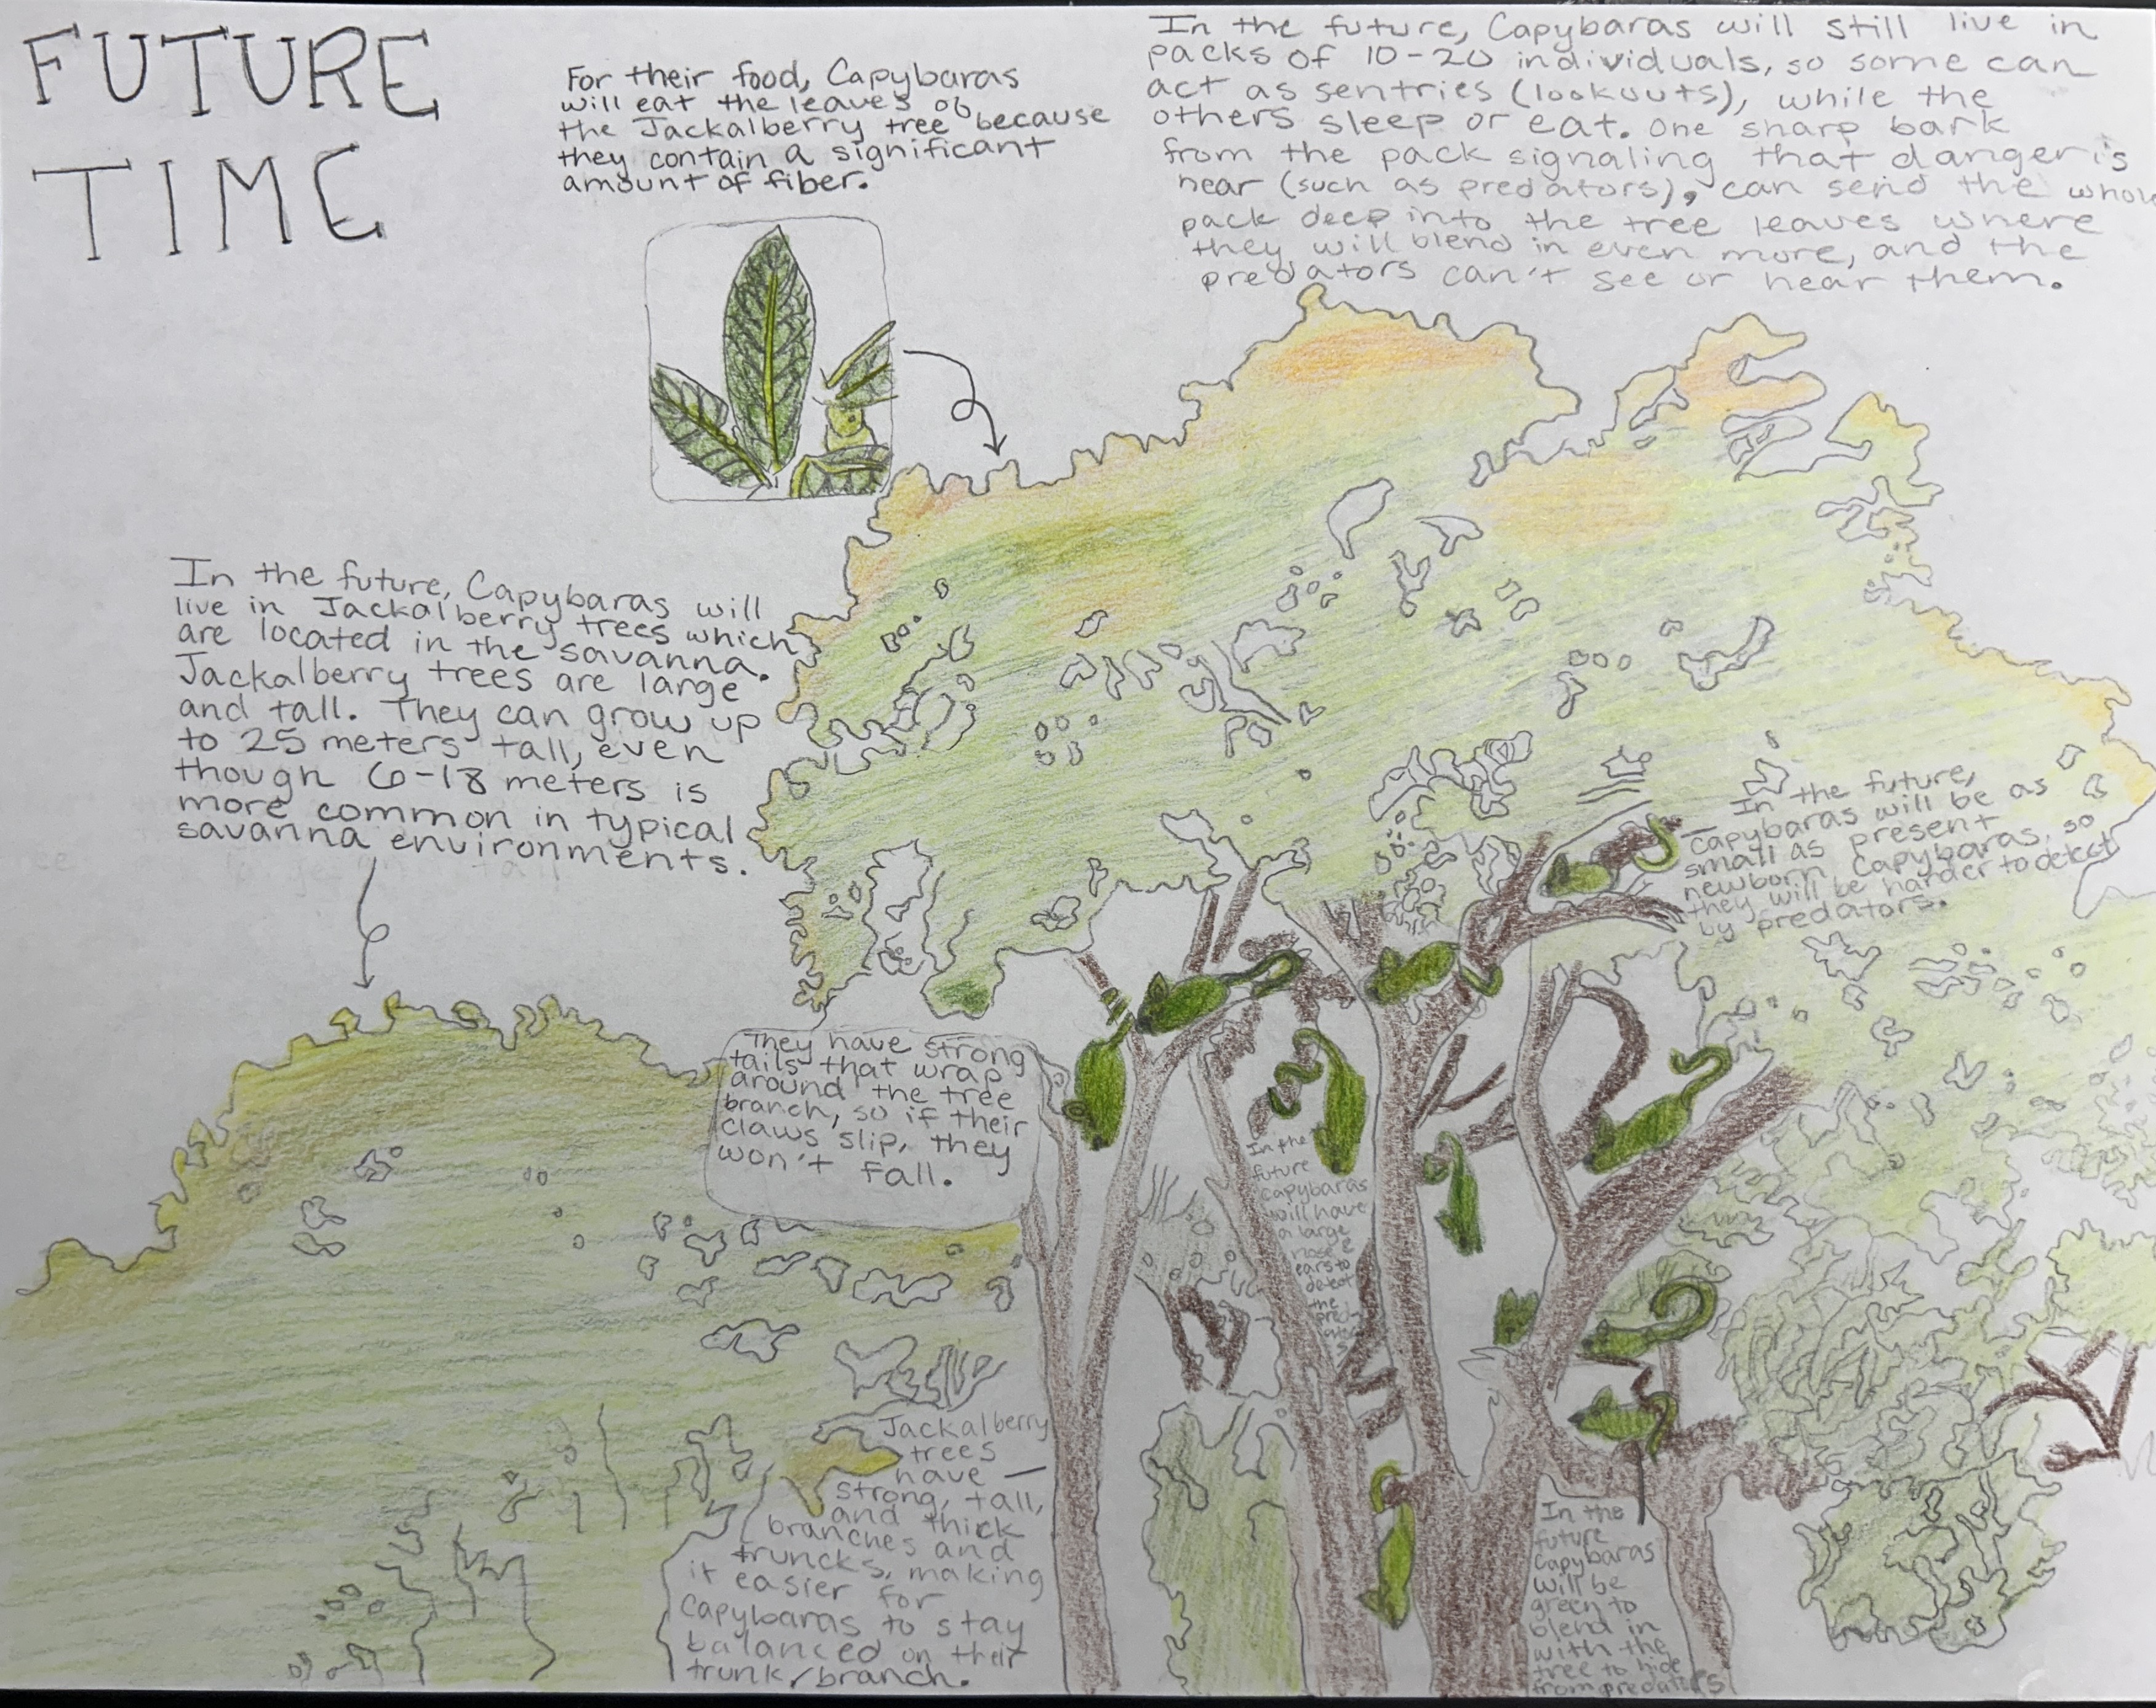 FUTURE
TIME
For their food, Capybaras
will eat the leaves of
the Jackalberry tree because
they contain a significant
amount of fiber.
In the future, Capybaras will still live in
packs of 10-20 individuals, so some can
act as sentries (lookouts), while the
others sleep or eat. One sharp bark
from the pack signaling that danger is
near (such as predators), can send the whole
pack deep into the tree leaves where
they will blend in even more, and the
predators can't see or hear them.
In the future, Capybaras will
live in Jackalberry trees which
are located in the savanna.
Jackalberry trees are large
and tall. They can grow up
to 25 meters tall, even
though 6-18 meters is
more common in typical
savanna environments.
In the future,
capybaras will be as
small as present
newborn Capybaras, so
they will be harder to detect
by predators.
They have strong
tails that wrap
around the tree
branch, so if their
claws slip, they
won't fall.
In the
future
capybaras
will have
a large
nose &
ears to
detect
the
pred-
ator
s
Jackalberry
trees
have —
strong, tall,
and thick
branches and
truncks, making
it easier for
Capybaras to stay
balanced on their
trunk/branch.
In the
future
Capybaras
will be
green to
blend in
with the
tree to hide
from predators